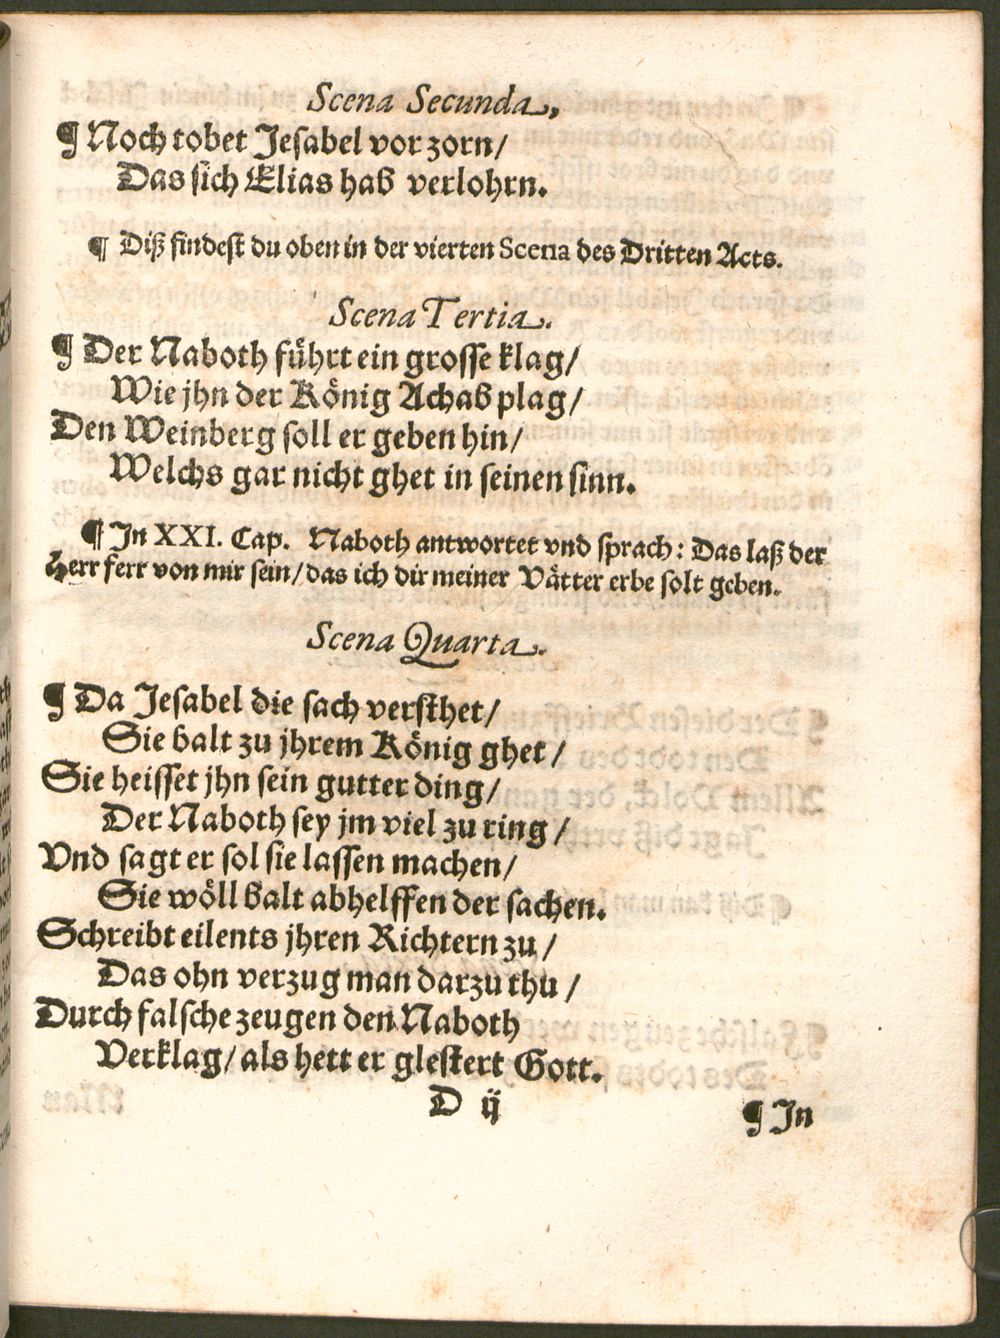 Scena Secunda,
¶ Noch tobet Jesabel vor zorn/
Das sich Elias hab verlohrn.
¶ Diß findest du oben in der vierten Scena des Dritten Acts.
Scena Tertia.
¶ Der Naboth führt ein grosse klag/
Wie jhn der König Achab plag/
Den Weinberg soll er geben hin/
Welchs gar nicht ghet in seinen sinn.
¶ In XXI. Cap. Naboth antwortet vnd sprach: Das laß der
Herr ferr von mir sein/das ich dir meiner Vätter erbe solt geben.
Scena Quarta.
¶ Da Jesabel die sach versthet/
Sie balt zu jhrem König ghet/
Sie heisset jhn sein gutter ding/
Der Naboth sey jm viel zu ring/
Vnd sagt er sol sie lassen machen/
Sie wöll balt abhelffen der sachen.
Schreibt eilents jhren Richtern zu/
Das ohn verzug man darzu thu/
Durch falsche zeugen den Naboth
Verklag/als hett er glestert Gott.
D ij
¶ In